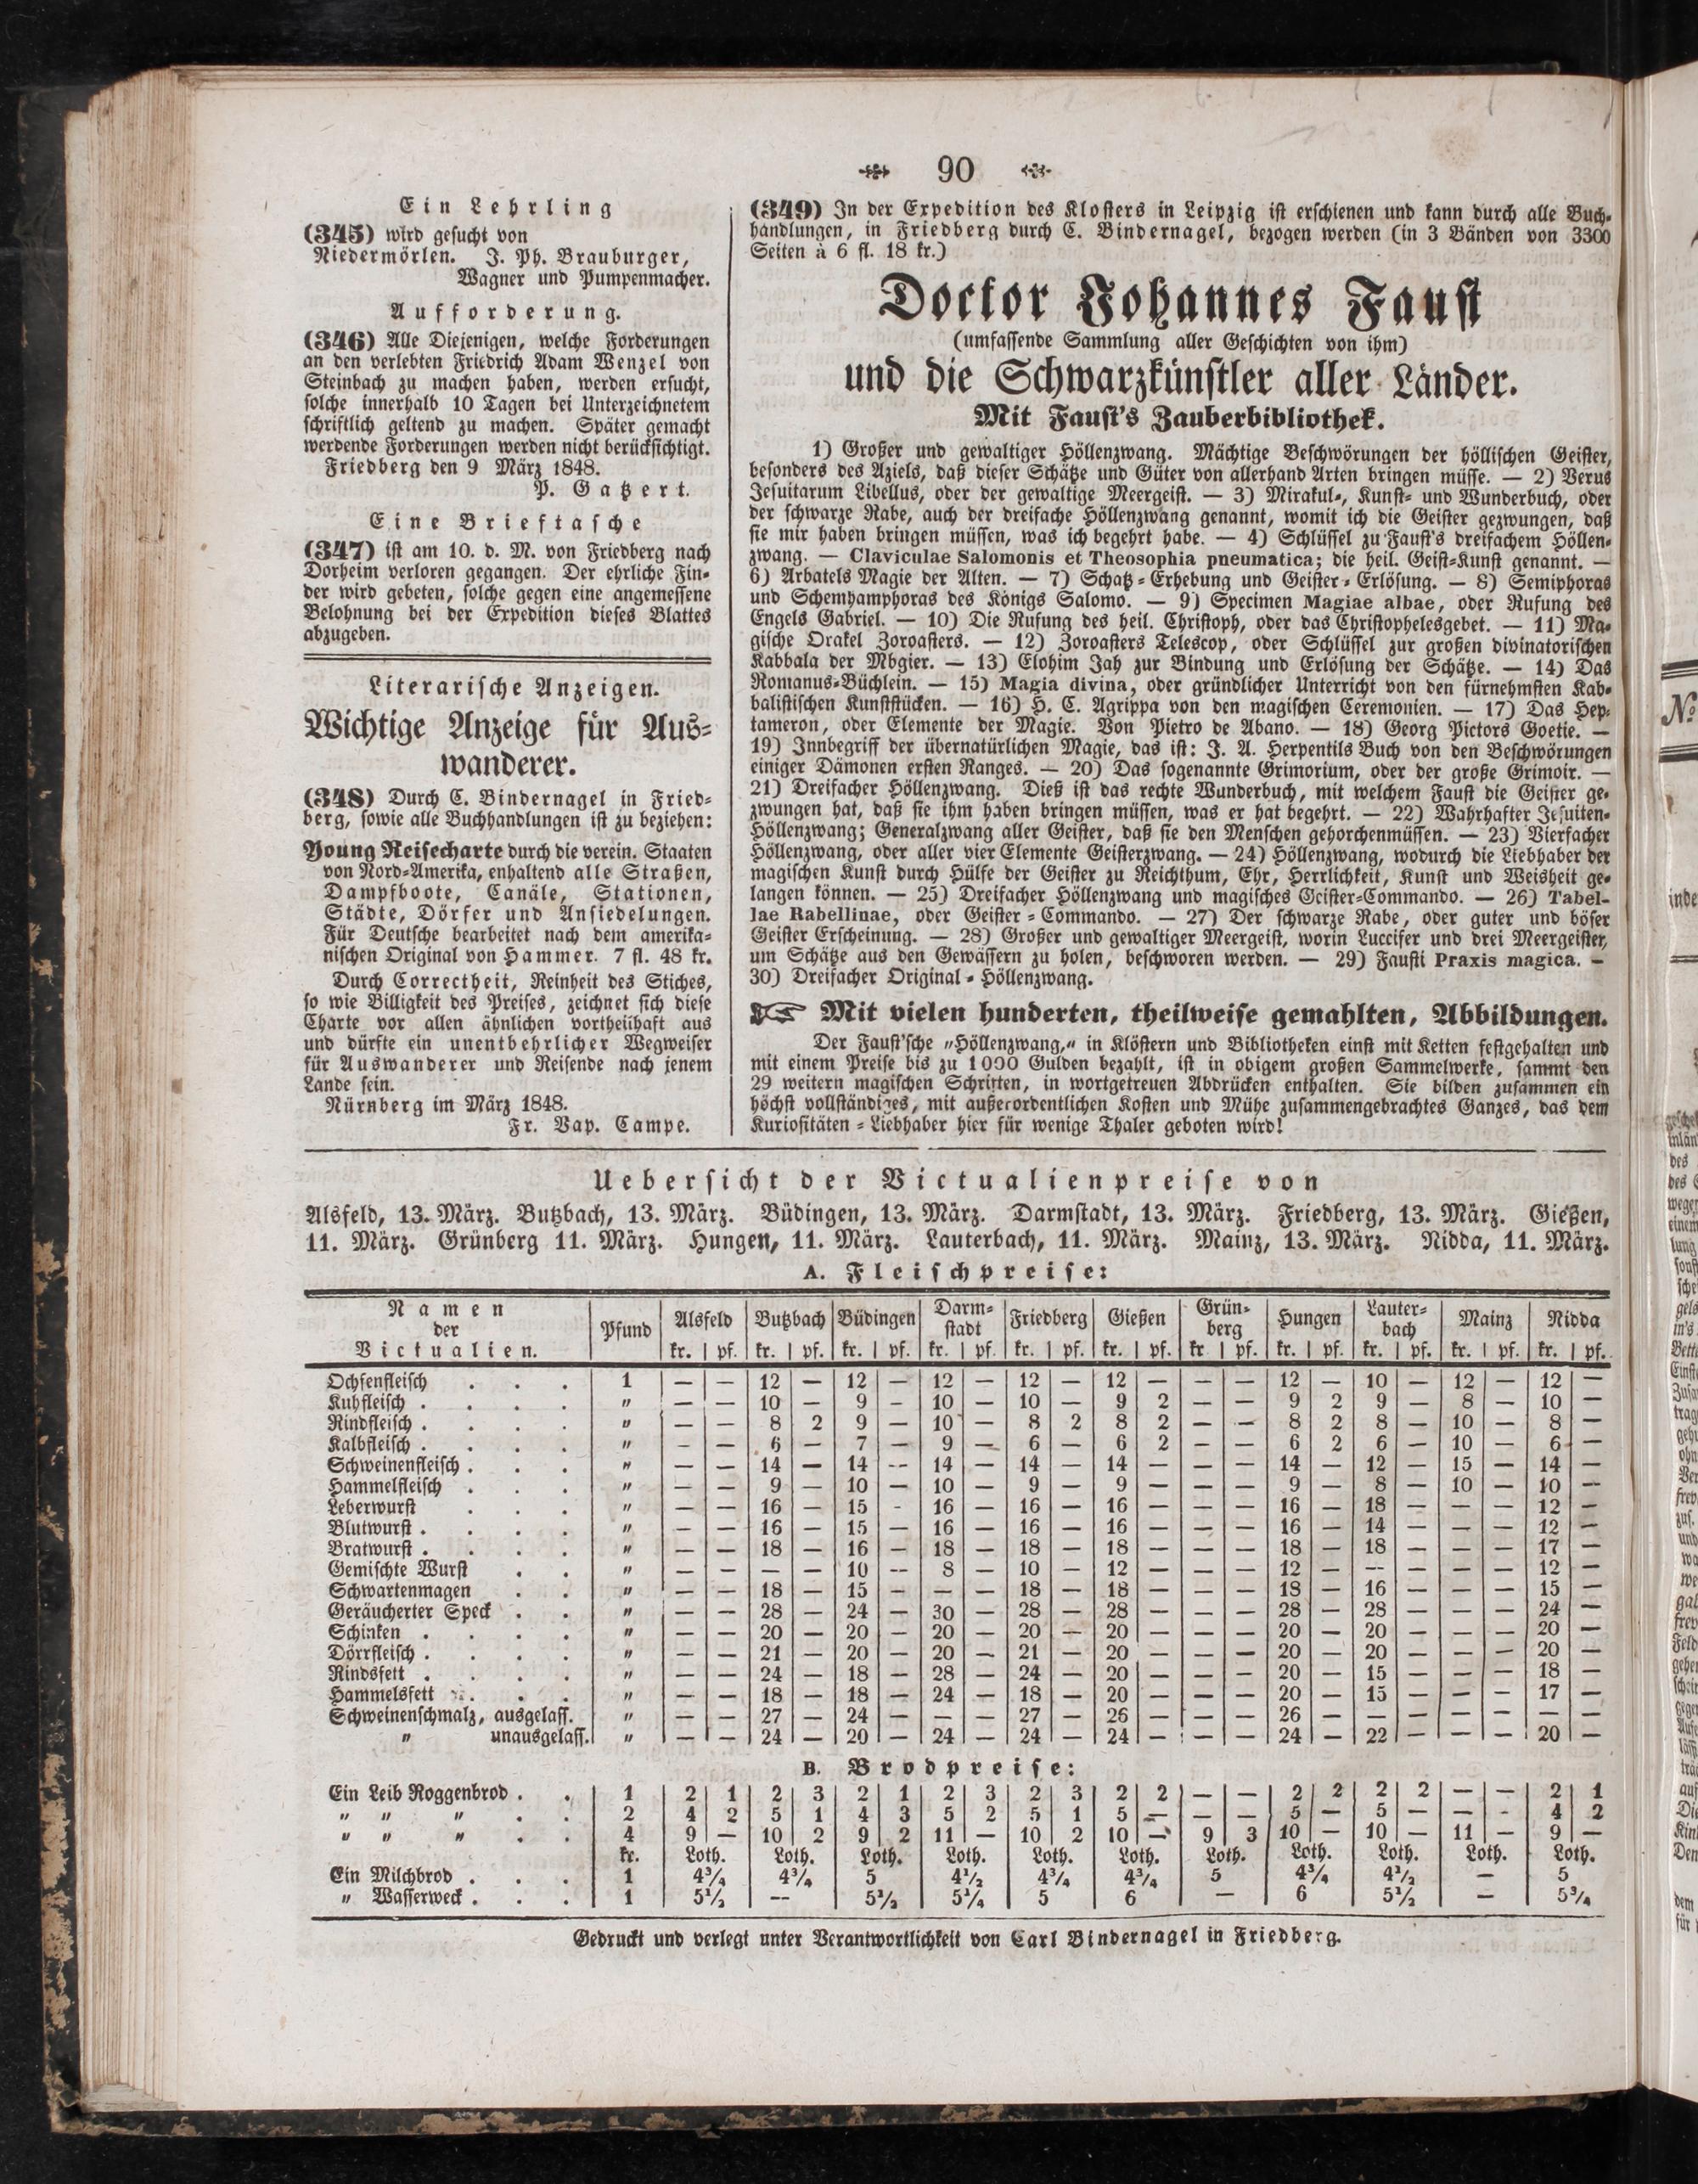 90
Ein Lehrling
(345) wird gesucht von
Niedermörlen. J. Ph. Brauburger,
Wagner und Pumpenmacher.
Aufforderung.
(346) Alle Diejenigen, welche Forderungen
an den verlebten Friedrich Adam Wenzel von
Steinbach zu machen haben, werden ersucht,
solche innerhalb 10 Tagen bei Unterzeichnetem
schriftlich geltend zu machen. Später gemacht
werdende Forderungen werden nicht berücksichtigt.
Friedberg den 9 März 1848.
P. Gatzert.
Eine Brieftasche
(347) ist am 10. d. M. von Friedberg nach
Dorheim verloren gegangen. Der ehrliche Fin-
der wird gebeten, solche gegen eine angemessene
Belohnung bei der Expedition dieses Blattes
abzugeben.
Literarische Anzeigen.
Wichtige Anzeige für Aus-
wanderer.
(348) Durch C. Bindernagel in Fried-
berg, sowie alle Buchhandlungen ist zu beziehen:
Young Reisecharte durch die verein. Staaten
von Nord-Amerika, enhaltend alle Straßen,
Dampfboote, Canäle, Stationen,
Städte, Dörfer und Ansiedelungen.
Für Deutsche bearbeitet nach dem amerika-
nischen Original von Hammer. 7 fl. 48 kr.
Durch Correctheit, Reinheit des Stiches,
so wie Billigkeit des Preises, zeichnet sich diese
Charte vor allen ähnlichen vortheilhaft aus
und dürfte ein unentbehrlicher Wegweiser
für Auswanderer und Reisende nach jenem
Lande sein.
Nürnberg im März 1848.
Fr. Vap. Campe.
(349) In der Expedition des Klosters in Leipzig ist erschienen und kann durch alle Buch-
handlungen, in Friedberg durch C. Bindernagel, bezogen werden (in 3 Bänden von 3300
Seiten à 6 fl. 18 kr.)
Doctor Johannes Faust
(umfassende Sammlung aller Geschichten von ihm)
und die Schwarzkünstler aller Länder.
Mit Faust's Zauberbibliothek.
1) Großer und gewaltiger Höllenzwang. Mächtige Beschwörungen der höllischen Geister,
besonders des Aziels, daß dieser Schätze und Güter von allerhand Arten bringen müsse. — 2) Verus
Jesuitarum Libellus, oder der gewaltige Meergeist. — 3) Mirakul-, Kunst- und Wunderbuch, oder
der schwarze Rabe, auch der dreifache Höllenzwang genannt, womit ich die Geister gezwungen, daß
sie mir haben bringen müssen, was ich begehrt habe. — 4) Schlüssel zu Faust's dreifachem Höllen-
zwang. — Claviculae Salomonis et Theosophia pneumatica; die heil. Geist-Kunst genannt. —
6) Arbatels Magie der Alten. — 7) Schatz-Erhebung und Geister-Erlösung. — 8) Semiphoras
und Schemhamphoras des Königs Salomo. — 9) Specimen Magiae albae, oder Rufung des
Engels Gabriel. — 10) Die Rufung des heil. Christoph, oder das Christophelesgebet. — 11) Ma-
gische Orakel Zoroasters. — 12) Zoroasters Telescop, oder Schlüssel zur großen divinatorischen
Kabbala der Mbgier. — 13) Elohim Jah zur Bindung und Erlösung der Schätze. — 14) Das
Romanus-Büchlein. — 15) Magia divina, oder gründlicher Unterricht von den fürnehmsten Kab-
balistischen Kunststücken. — 16) H. C. Agrippa von den magischen Ceremonien. — 17) Das Hep-
tameron, oder Elemente der Magie. Von Pietro de Abano. — 18) Georg Pictors Goetie. —
19) Innbegriff der übernatürlichen Magie, das ist: J. A. Herpentils Buch von den Beschwörungen
einiger Dämonen ersten Ranges. — 20) Das sogenannte Grimorium, oder der große Grimoir. —
21) Dreifacher Höllenzwang. Dieß ist das rechte Wunderbuch, mit welchem Faust die Geister ge-
zwungen hat, daß sie ihm haben bringen müssen, was er hat begehrt. — 22) Wahrhafter Jesuiten-
Höllenzwang; Generalzwang aller Geister, daß sie den Menschen gehorchenmüssen. — 23) Vierfacher
Höllenzwang, oder aller vier Elemente Geisterzwang. — 24) Höllenzwang, wodurch die Liebhaber der
magischen Kunst durch Hülfe der Geister zu Reichthum, Ehr, Herrlichkeit, Kunst und Weisheit ge-
langen können. — 25) Dreifacher Höllenzwang und magisches Geister-Commando. — 26) Tabel-
lae Rabellinae, oder Geister-Commando. — 27) Der schwarze Rabe, oder guter und böser
Geister Erscheinung. — 28) Großer und gewaltiger Meergeist, worin Luccifer und drei Meergeister,
um Schätze aus den Gewässern zu holen, beschworen werden. — 29) Fausti Praxis magica. —
30) Dreifacher Original-Höllenzwang.
☞ Mit vielen hunderten, theilweise gemahlten, Abbildungen.
Der Faust'sche „Höllenzwang,“ in Klöstern und Bibliotheken einst mit Ketten festgehalten und
mit einem Preise bis zu 1000 Gulden bezahlt, ist in obigem großen Sammelwerke, sammt den
29 weitern magischen Schriften, in wortgetreuen Abdrücken enthalten. Sie bilden zusammen ein
höchst vollständiges, mit außerordentlichen Kosten und Mühe zusammengebrachtes Ganzes, das dem
Kuriositäten-Liebhaber hier für wenige Thaler geboten wird!
Uebersicht der Victualienpreise von
Alsfeld, 13. März. Butzbach, 13. März. Büdingen, 13. März. Darmstadt, 13. März. Friedberg, 13. März. Gießen,
11. März. Grünberg 11. März. Hungen, 11. März. Lauterbach, 11. März. Mainz, 13. März. Nidda, 11. März.
A. Fleischpreise:
Namen der Victualien. | Pfund | Alsfeld | Butzbach | Büdingen | Darm-stadt | Friedberg | Gießen | Grün-berg | Hungen | Lauter-bach | Mainz | Nidda
kr. | pf. | kr. | pf. | kr. | pf. | kr. | pf. | kr. | pf. | kr. | pf. | kr | pf. | kr. | pf. | kr. | pf. | kr. | pf. | kr. | pf.
Ochsenfleisch . . . 1 — — 12 — 12 — 12 — 12 — 12 — — — 12 — 10 — 12 — 12 —
Kuhfleisch . . . . " — — 10 — 9 - 10 — 10 — 9 2 — — 9 2 9 — 8 — 10 —
Rindfleisch . . . . " — — 8 2 9 — 10 — 8 2 8 2 — — 8 2 8 — 10 — 8 —
Kalbfleisch . . . . " - — 6 — 7 — 9 — 6 — 6 2 — — 6 2 6 — 10 — 6 —
Schweinenfleisch . . . " — — 14 — 14 -- 14 — 14 — 14 — — — 14 — 12 — 15 — 14 —
Hammelfleisch . . . " — — 9 — 10 — 10 — 9 — 9 — — — 9 — 8 — 10 — 10 —
Leberwurst . . . " — — 16 — 15 - 16 — 16 — 16 — — — 16 — 18 — — — 12 —
Blutwurst . . . . " — — 16 — 15 — 16 — 16 — 16 — — — 16 — 14 — — — 12 —
Bratwurst . . . . " — — 18 — 16 — 18 — 18 — 18 — — — 18 — 18 — — — 17 —
Gemischte Wurst . . " — — — — 10 -- 8 — 10 — 12 — — — 12 — -- — — — 12 —
Schwartenmagen . . " — — 18 — 15 — — — 18 — 18 — — — 18 — 16 — — — 15 —
Geräucherter Speck . . " — — 28 — 24 — 30 — 28 — 28 — — — 28 — 28 — — — 24 —
Schinken . . . . " — — 20 — 20 — 20 — 20 — 20 — — — 20 — 20 — — — 20 —
Dörrfleisch . . . . " — — 21 — 20 — 20 — 21 — 20 — — — 20 — 20 — — — 20 —
Rindsfett . . . . " — — 24 — 18 — 28 — 24 — 20 — — — 20 — 15 — — — 18 —
Hammelsfett . . . " — — 18 — 18 — 24 — 18 — 20 — — — 20 — 15 — — — 17 —
Schweinenschmalz, ausgelass. " — — 27 — 24 — — — 27 — 26 — — — 26 — — — — — — —
" unausgelass. " — — 24 — 20 — 24 — 24 — 24 — — — 24 — 22 — — — 20 —
B. Brodpreise:
Ein Leib Roggenbrod . . 1 2 1 2 3 2 1 2 3 2 3 2 2 — — 2 2 2 2 — — 2 1
" " " . . 2 4 2 5 1 4 3 5 2 5 1 5 — — — 5 — 5 — — - 4 2
" " " . . 4 9 — 10 2 9 2 11 — 10 2 10 — 9 3 10 — 10 — 11 — 9 —
kr. Loth. Loth. Loth. Loth. Loth. Loth. Loth. Loth. Loth. Loth. Loth.
Ein Milchbrod . . . 1 4¾ 4¾ 5 4½ 4¾ 4¾ 5 4¾ 4½ — 5
" Wasserweck . . . 1 5½ -- 5½ 5¼ 5 6 — 6 5½ — 5¾
Gedruckt und verlegt unter Verantwortlichkeit von Carl Bindernagel in Friedberg.
№